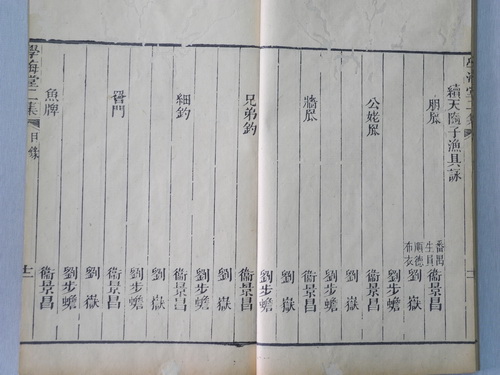 續天隨子漁具詠
朋罛 番禺生員 衞景昌
順德布衣 劉嶽
劉步蟾
公姥罛 衞景昌
劉嶽
劉步蟾
牆罛 衞景昌
劉嶽
劉步蟾
兄弟釣 衞景昌
劉嶽
劉步蟾
細釣 衞景昌
劉嶽
劉步蟾
罾門 衞景昌
劉嶽
劉步蟾
魚牌 衞景昌
學海堂二集 目錄 十二